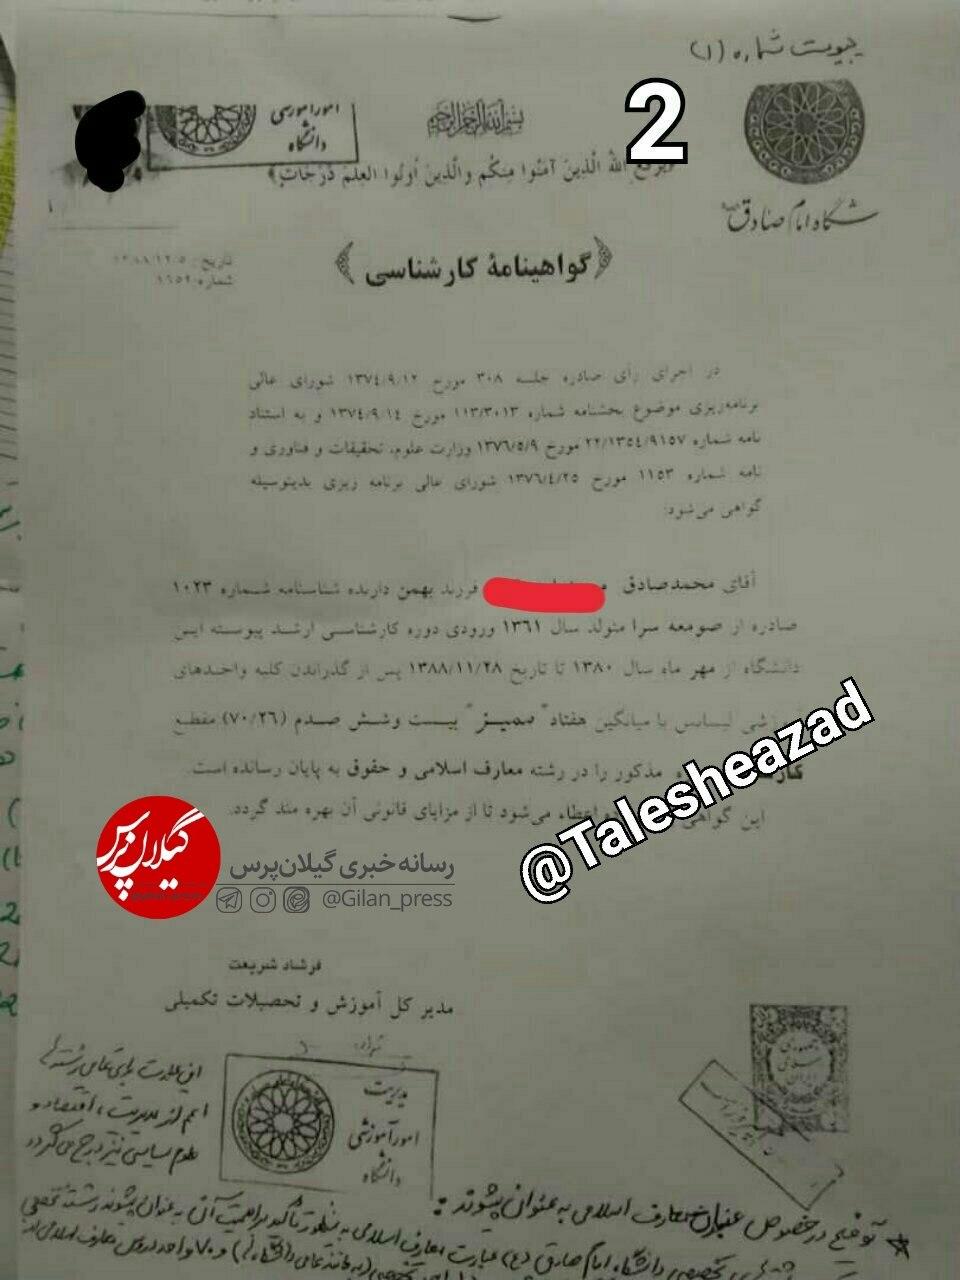 پیوست شماره (۱)
2
امور آموزشی
دانشگاه
بسم الله الرحمن الرحیم
اللهُ الَّذِینَ آمَنُوا مِنکُم والَّذِینَ اُوتُوا العِلمَ دَرَجَاتٍ﴾
شگاه امام صادق
گواهینامهٔ کارشناسی
تاریخ:
شماره:
در اجرای رأی صادره جلسه ۳۰۸ مورخ ۱۳۷٤/۹/۱۲ شورای عالی
برنامه‌ریزی موضوع بخشنامه شماره ۱۱۳/۳۰۱۳ مورخ ۱۳۷٤/۹/۱٤ و به استناد
نامه شماره ۲۲/۱۳۵٤/۹۱۵۷ مورخ ۱۳۷٦/۵/۹ وزارت علوم، تحقیقات و فناوری و
نامه شماره ۱۱۵۳ مورخ ۱۳۷٦/٤/۲۵ شورای عالی برنامه ریزی بدینوسیله
گواهی می‌شود:
آقای محمدصادق فرزند بهمن دارنده شناسنامه شماره ۱۰۲۳
صادره از صومعه سرا متولد سال ۱۳٦۱ ورودی دوره کارشناسی ارشد پیوسته این
دانشگاه از مهر ماه سال ۱۳۸۰ تا تاریخ ۱۳۸۸/۱۱/۲۸ پس از گذراندن کلیه واحدهای
شی لیسانس با میانگین هفتاد" ممیز" بیست وشش صدم (۷۰/۲٦) مقطع
مذکور را در رشته معارف اسلامی و حقوق به پایان رسانده است.
این گواهی اعطاء می‌شود تا از مزایای قانونی آن بهره مند گردد.
@Talesheazad
گیلان پرس
رسانه خبری گیلان‌پرس
@Gilan_press
فرشاد شریعت
مدیر کل آموزش و تحصیلات تکمیلی
مدیریت
امور آموزشی
دانشگاه
این عبارت برای تمامی رشته‌ها
اعم از مدیریت، اقتصاد و
علوم سیاسی نیز درج می‌گردد
* توضیح در خصوص عنوان معارف اسلامی به عنوان پیشوند:
دانشگاه امام صادق (ع) عبارت معارف اسلامی به منظور تأکید بر اهمیت آن به عنوان پیشوند رشته تخصصی